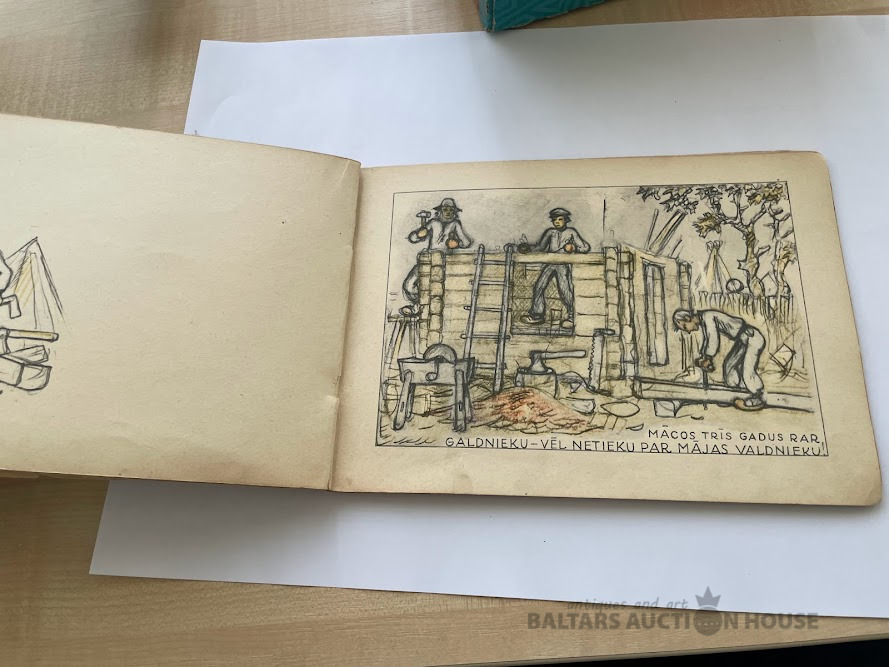 MĀCOS TRĪS GADUS PAR,
GALDNIEKU-VĒL NETIEKU PAR MĀJAS VALDNIEKU!
antiques and art
BALTARS AUCTION HOUSE